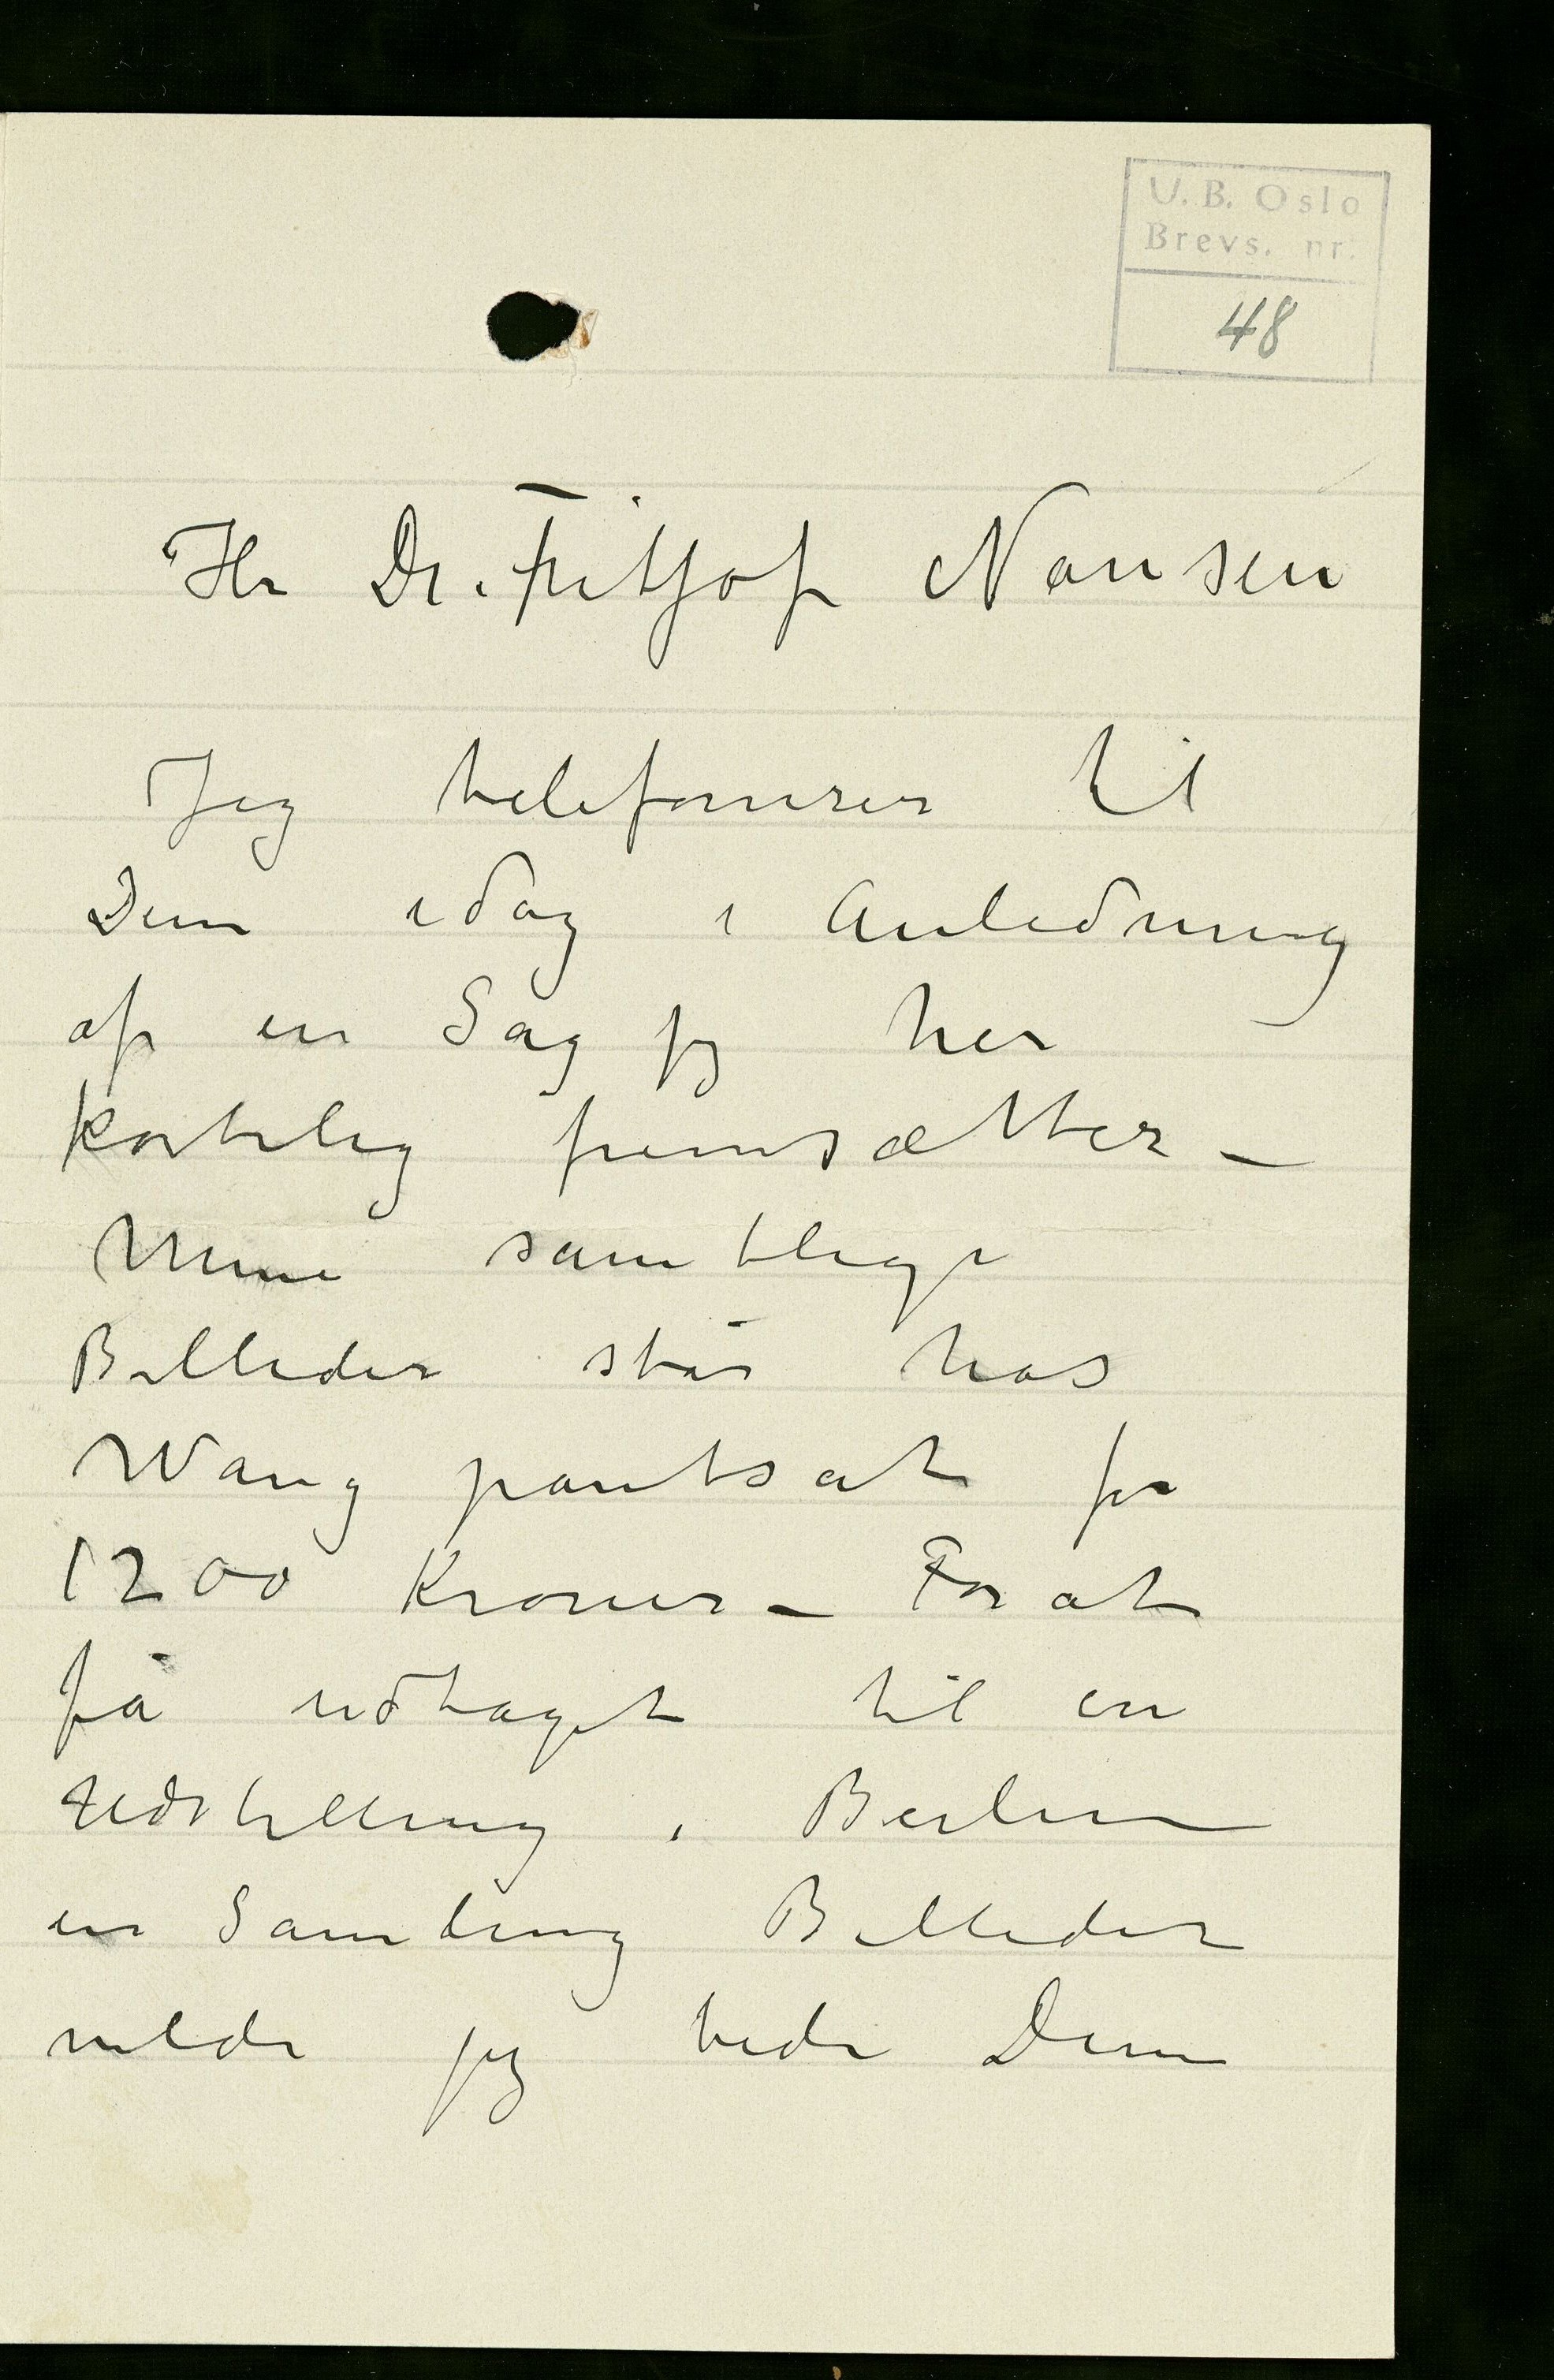 U. B. Oslo
Brevs. nr.
48
Hr Dr. Fritjof Nansen
Jeg telefonerer til
Dem idag i Anledning
af en Sag jeg her
kortelig fremsætter –
Mine samtlige
Billeder står hos
Wang pantsat for
1200 Kroner – For at
få udtaget til en
Udstilling i Berlin
en Samling Billeder
vilde jeg bede Dem